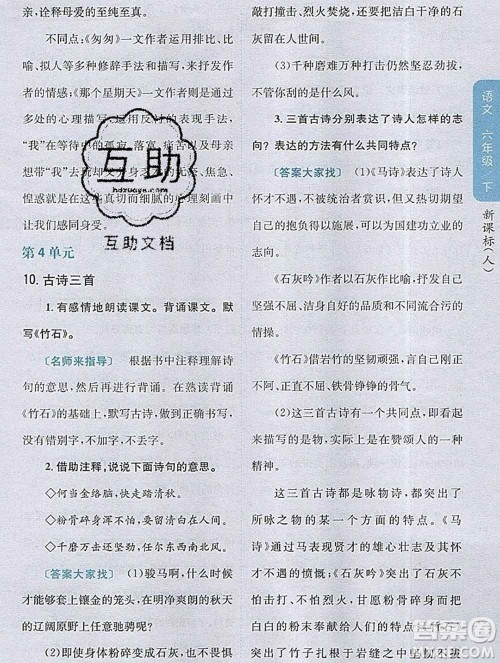 亲,诠释母爱的至纯至真。
不同点:《匆匆》一文作者运用排比、比
喻、拟人等多种修辞手法和描写,来抒发作
者的情感;《那个星期天》一文中,作者通过
多处的心理描写,
求、无奈、落寞、痛苦以及与母亲
间“我”
惶惑就是在这些真切而细腻的心理刻画中
让我们感同身受。
第4单元
10. 古诗三首
1. 有感情地朗读课文。背诵课文。默
写《竹石》。
〔名师来指导〕 根据书中注释理解诗
句的意思,然后再进行背诵。在熟读背诵
《竹石》的基础上,默写古诗,做到正确书写,
没有错别字,不加字,不丢字。
2. 借助注释,说说下面诗句的意思。
◇何当金络脑,快走踏清秋。
◇粉骨碎身浑不怕,要留清白在人间。
◇千磨万击还坚劲,任尔东西南北风。
〔答案大家找〕 (1)骏马啊,什么时候
才能够套上镶金的笼头,在明净爽朗的秋天
的辽阔原野上任意驰骋呢?
(2)即使身体粉碎变成石灰,也不畏惧
敲打撞击、烈火焚烧,要把洁白干净的石
灰留在人间。
(3)千种磨难万种打击仍然坚忍劲拔,
不管你刮的是什么风。
3. 三首古诗分别表达了诗人怎样的志
向?表达的方法有什么共同特点?
〔答案大家找〕 (1)《马诗》表达了诗人
怀才不遇的感慨与愤慨,但又热切期望自己
的抱负能够实现的思想感情。
《石灰吟》作者以石灰作比喻,抒发自己
坚强不屈、洁身自好的品质和不同流合污的
情感。
《竹石》借岩竹的坚韧顽强,言自己刚正
不阿、正直不屈、铁骨铮铮的骨气。
(2)这三首古诗有一个共同点,即看起
来描写的是物,实际上是在赞颂人的一种
精神。
这三首古诗都是咏物诗,都突出了
所咏之物的某一个方面的特点。《马
诗》突出了马上有贤才的雄心壮志及其怀
才不遇的愤慨;《石灰吟》突出了甘愿粉骨碎身把
白白的粉末奉献给人类的特点;《竹石》突
出了竹子能扎根于岩缝之中仍
语文 六年级/下
新课标(人)
互助
hdzuoye.com
互助文档
答案圈